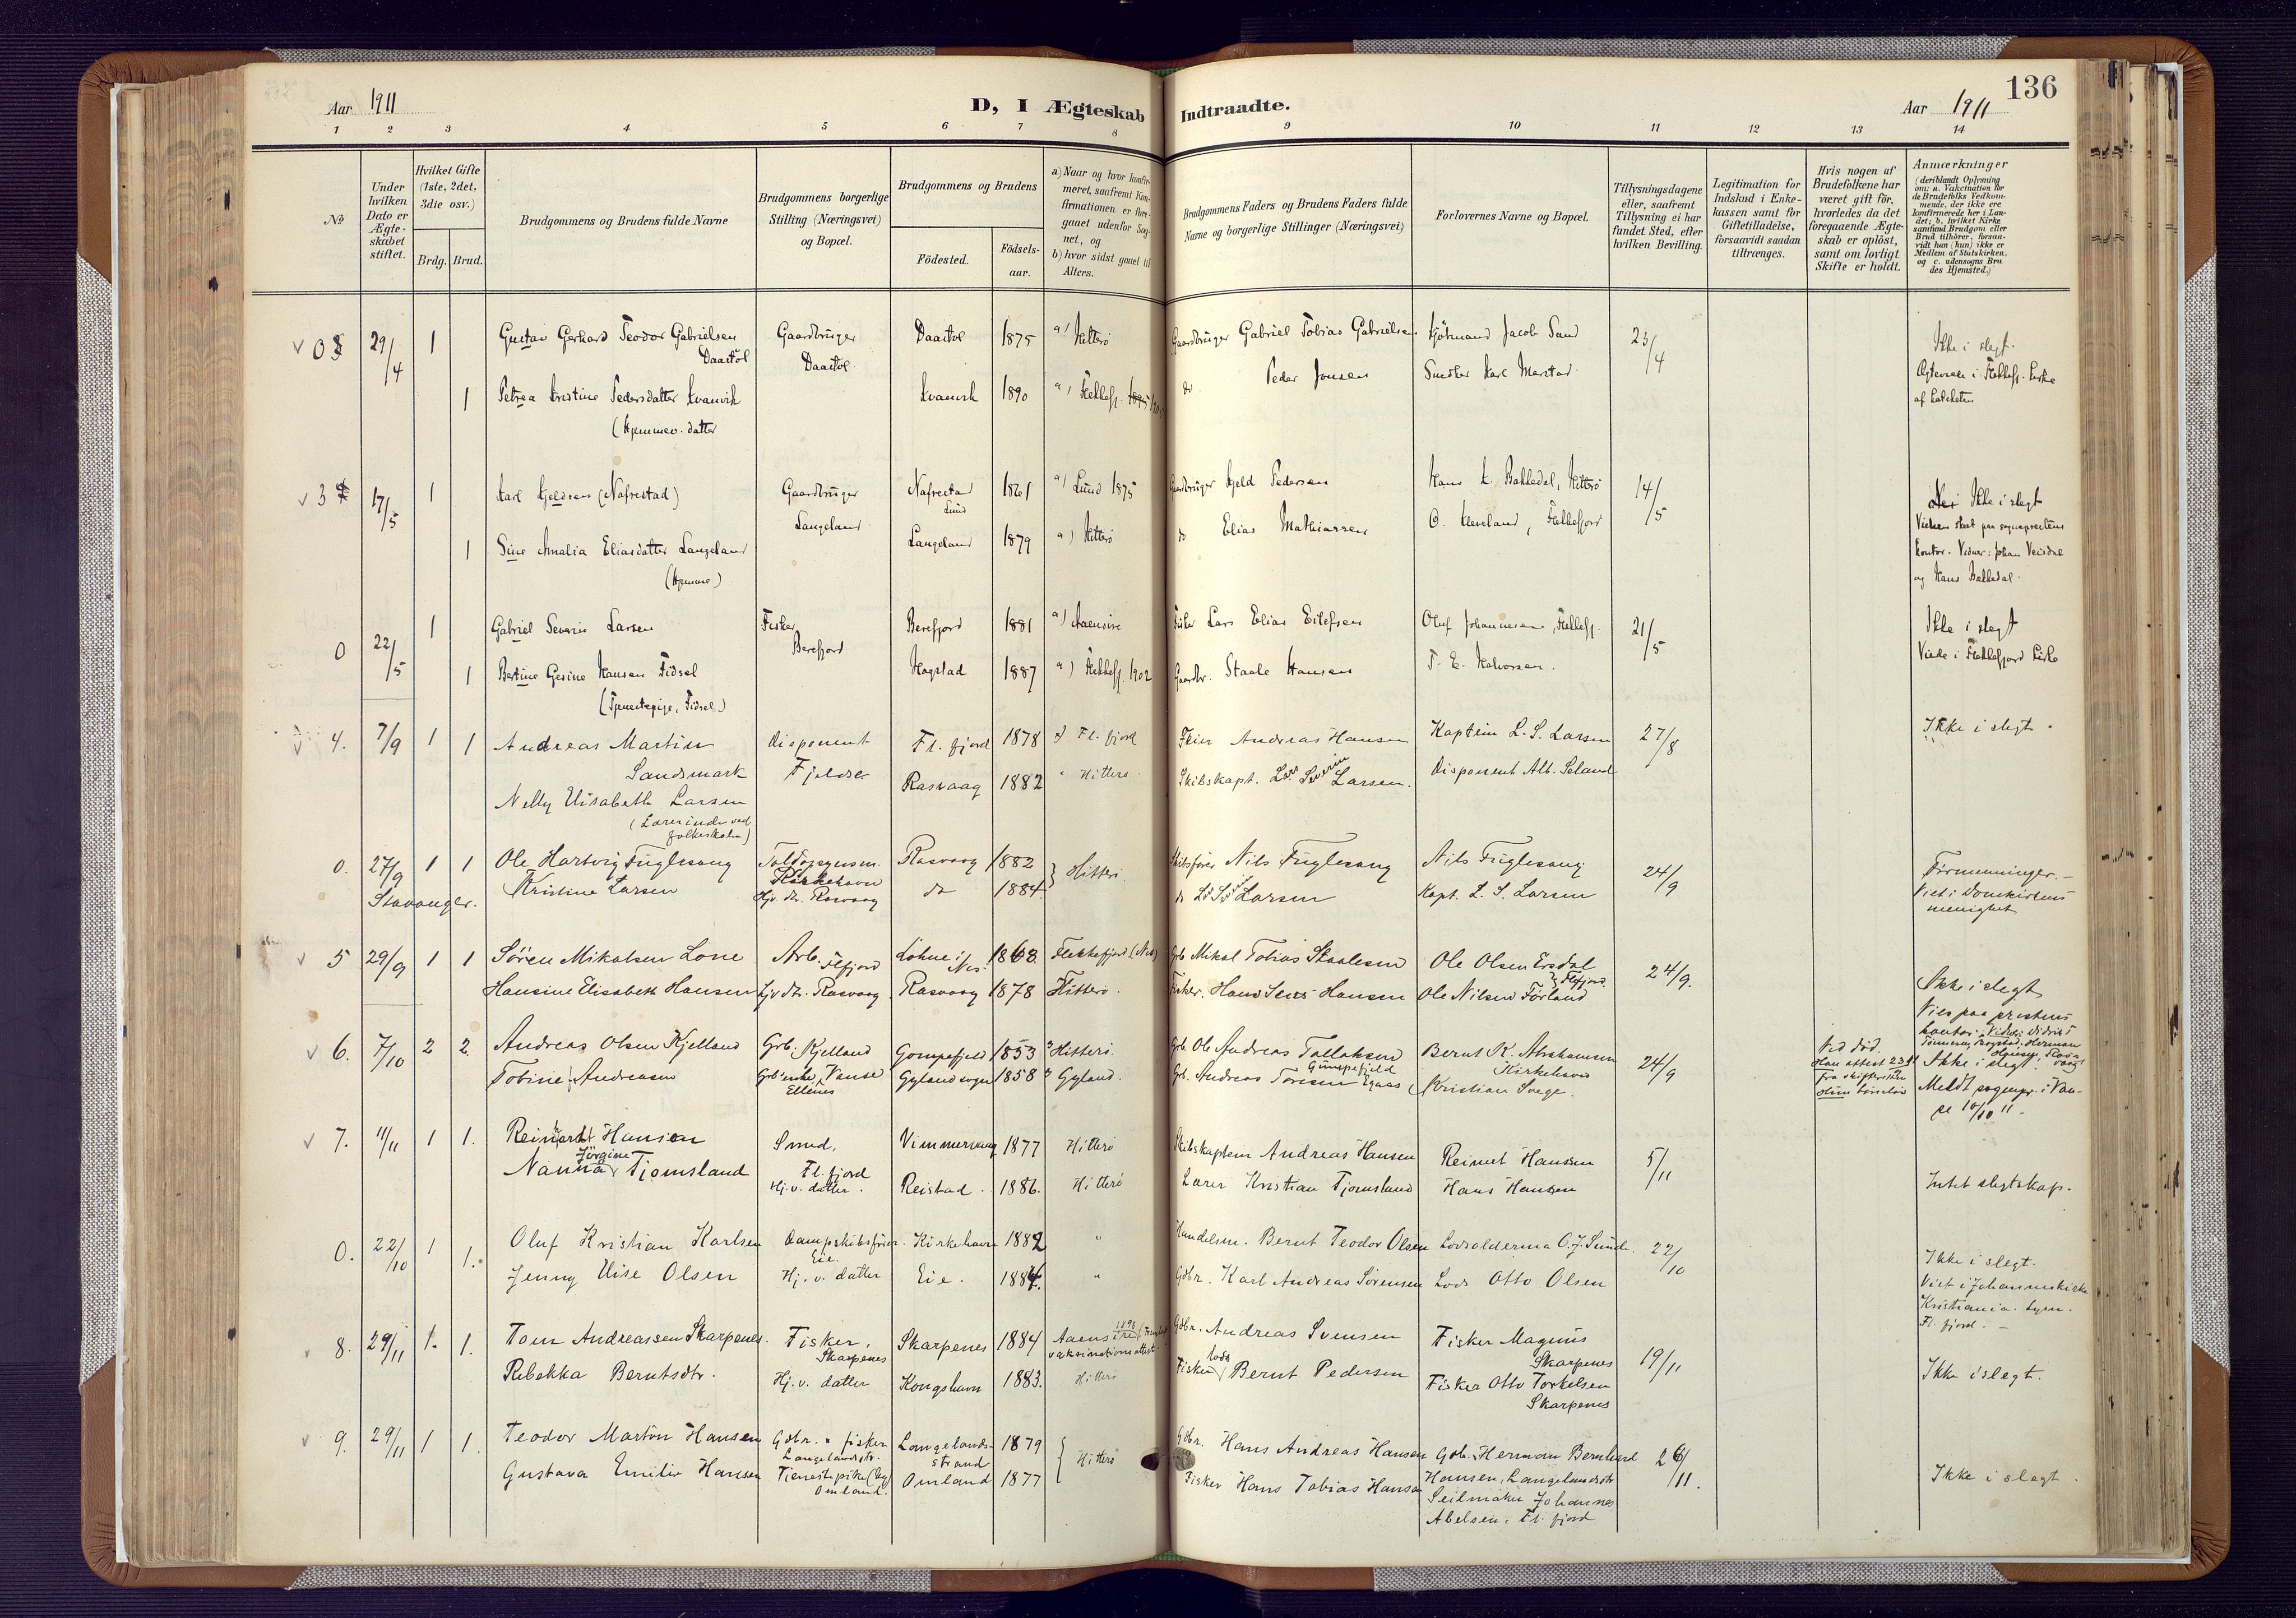 136
Aar 1911
D, I Ægteskab Indtraadte.
Aar 1911
1 2 3 4 5 6 7 8 9 10 11 12 13 14
No
Under hvilken Dato er Ægteskabet stiftet.
Hvilket Gifte (1ste, 2det, 3die osv.)
Brdg. Brud.
Brudgommens og Brudens fulde Navne
Brudgommens borgerlige Stilling (Næringsvei) og Bopæl.
Brudgommens og Brudens
Födested. Födselsaar.
a) Naar og hvor konfirmeret, saafremt Konfirmationen er foregaaet udenfor Sognet, og
b) hvor sidst gaaet til Alters.
Brudgommens Faders og Brudens Faders fulde Navne og borgerlige Stillinger (Næringsvei)
Forlovernes Navne og Bopæl.
Tillysningsdagene eller, saafremt Tillysning ei har fundet Sted, efter hvilken Bevilling.
Legitimation for Indskud i Enkekassen samt for Giftetilladelse, forsaavidt saadan tiltrænges.
Hvis nogen af Brudefolkene har været gift för, hvorledes da det foregaaende Ægteskab er oplöst, samt om lovligt Skifte er holdt.
Anmærkninger
(deriblandt Oplysning om: a. Vakcination for de Brudefolks Vedkommende, der ikke ere konfirmerede her i Landet; b. hvilket Kirkesamfund Brudgom eller Brud tilhörer, forsaavidt han (hun) ikke er Medlem af Statskirken, og c. udensogns Brudes Hjemsted.)
0 29/4 1 Gustav Gerhard Teodor Gabrielsen Daastöl Gaardbruger Daastöl Daastöl 1875 a) Hitterö Gaardbruger Gabriel Tobias Gabrielsen Kjöbmand Jacob Sand 23/4 Ikke i slegt.
1 Petrea Kristine Pedersdatter Kvanvik Kvanvik 1890 a) Flekkefj. 1905 do Peder Jonsen Snedker Karl Marstad Ægteviede i Flekkefj. kirke
(Hjemmev. datter
3 17/5 1 Karl Kjeldsen (Nafrestad) Gaardbruger Langeland Nafrestad Lund 1861 a) Lund 1875 Gaardbruger Kjeld Pedersen Hans K. Bakkedal, Hitterö 14/5 Ikke i slegt
1 Sine Amalia Eliasdatter Langeland Langeland 1879 a) Hitterö do Elias Mathiassen O. Kleveland, Flekkefjord Vielsen skeet paa sogneprestens kontor. Vidner: Johan Veisdal og Hans Bakkedal.
(Hjemme)
0 22/5 1 Gabriel Severin Larsen Fisker Berefjord Berefjord 1881 a) Aaensire Fisker Lars Elias Eilefsen Oluf Johannesen, Flekkefj. 21/5 Ikke i slegt
1 Bertine Gesine Hansen Fidsel Hogstad 1887 a) Flekkefj. 1902 Gaardbr. Staale Hansen T. E. Halvorsen. Viede i Flekkefjord kirke
(Tjenestepige, Fidsel)
4. 7/9 1 1 Andreas Martin Sandsmark Disponent Fjeldse Fl. fjord 1878 a) Fl. fjord Feier Andreas Hansen Kaptein L. S. Larsen 27/8 Ikke i slegt.
Nelly Elisabeth Larsen Rasvaag 1882 " Hitterö Skibskapt. Lars Severin Larsen. Disponent Alb. Seland
(Lærerinde ved folkeskolen)
0. 27/9 1 1 Ole Hartvig Fuglesang Toldopsynsm. Kirkehavn Rasvaag 1882 Hitterö. Skibsfører Nils Fuglesang Nils Fuglesang 24/9
Stavanger. Kristine Larsen Hjv. dr. Rasvaag do 1884. do Larsen Kapt. L. S. Larsen Viet i Domkirkens menighet
5 29/9 1 1 Sören Mikalsen Lone Arb. Flfjord Löhne i Nes 1868. Flekkefjord (Nes) Grb. Mikal Tobias Staalesen Ole Olsen Ersdal 24/9.
Hansine Elisabeth Hansen Hjvdtr. Rasvaag Rasvaag 1878 Hitterö. Fisker. Hans Hansen Ole Nilsen Förland Flfjord. Ikke i slegt
Viet paa prestens kontor.
6. 7/10 2 2. Andreas Olsen Kjelland Grb. Kjelland Gompefjeld 1853 Hitterö. Grb. Ole Andreas Tollaksen Gumpefjeld Bernt K. Abrahamsen Kirkehavn 24/9 Ved död. Ikke i slegt.
Tobine Andreasen Grb enke, Vanse Ellenes Gyland sogn 1858 Gyland. Grb. Andreas Toresen Egaas Kristian Svege. Meldt sognepr. i Vanse 10/10 11.
7. 11/11 1 1. Reinhardt Hansen Smed, Fl. fjord Vimmersvaag 1877 Hitterö Skibskaptein Andreas Hansen Reinert Hansen 5/11
Nanna Jörgine Tjomsland Hj. v. datter. Reistad. 1886. Hitterö Lærer Kristian Tjomsland Hans Hansen Intet slegtskap.
0. 22/10 1 1. Oluf Kristian Karlsen Dampskibsfører. Eie. Kirkehavn 1882 " Handelsm. Bernt Teodor Olsen Lodsolderman O. J. Sunde. 22/10 Ikke i slegt.
Jenny Elise Olsen Hj. v. datter Eie. 1884. " Gdbr. Karl Andreas Sørensen Lods Otto Olsen Viet i Johanneskirke Kristiania. Lysn. Fl. fjord.
8. 29/11 1. 1. Tom Andreassen Skarpenes. Fisker, Skarpenes Skarpenes 1884 Aaensire 1898 vaksinationsattest Gdbr. Andreas Svensen Fisker Magnus Skarpenes 19/11
Rebekka Berntsdtr. Hj. v. datter Kongshavn 1883. Hitterö Fisker lods Bernt Pedersen Fisker Otto Torkelsen Skarpenes Ikke i slegt.
9. 29/11 1 1. Teodor Martin Hansen Gdbr. & fisker Langelandsstr. Langelandsstrand 1879 Hitterö Gdbr. Hans Andreas Hansen Gdb. Herman Bernhard Hansen, Langelandsstr. 26/11.
Gustava Emilie Hansen Tienestepike Omland. Omland 1877 Fisker Hans Tobias Hansen Seilmaker Johannes Abelsen. Fl. fjord Ikke i slegt.